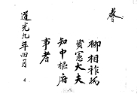 教
柳相祚爲
資憲大夫
知中樞府
事者
道光九年四月